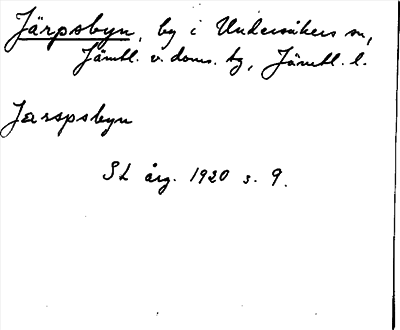 Järpsbyn, by i Undersåkers sn,
Jämtl. v. doms. hg, Jämtl. l.
Jarpsbyn
SL årg. 1920 s. 9.